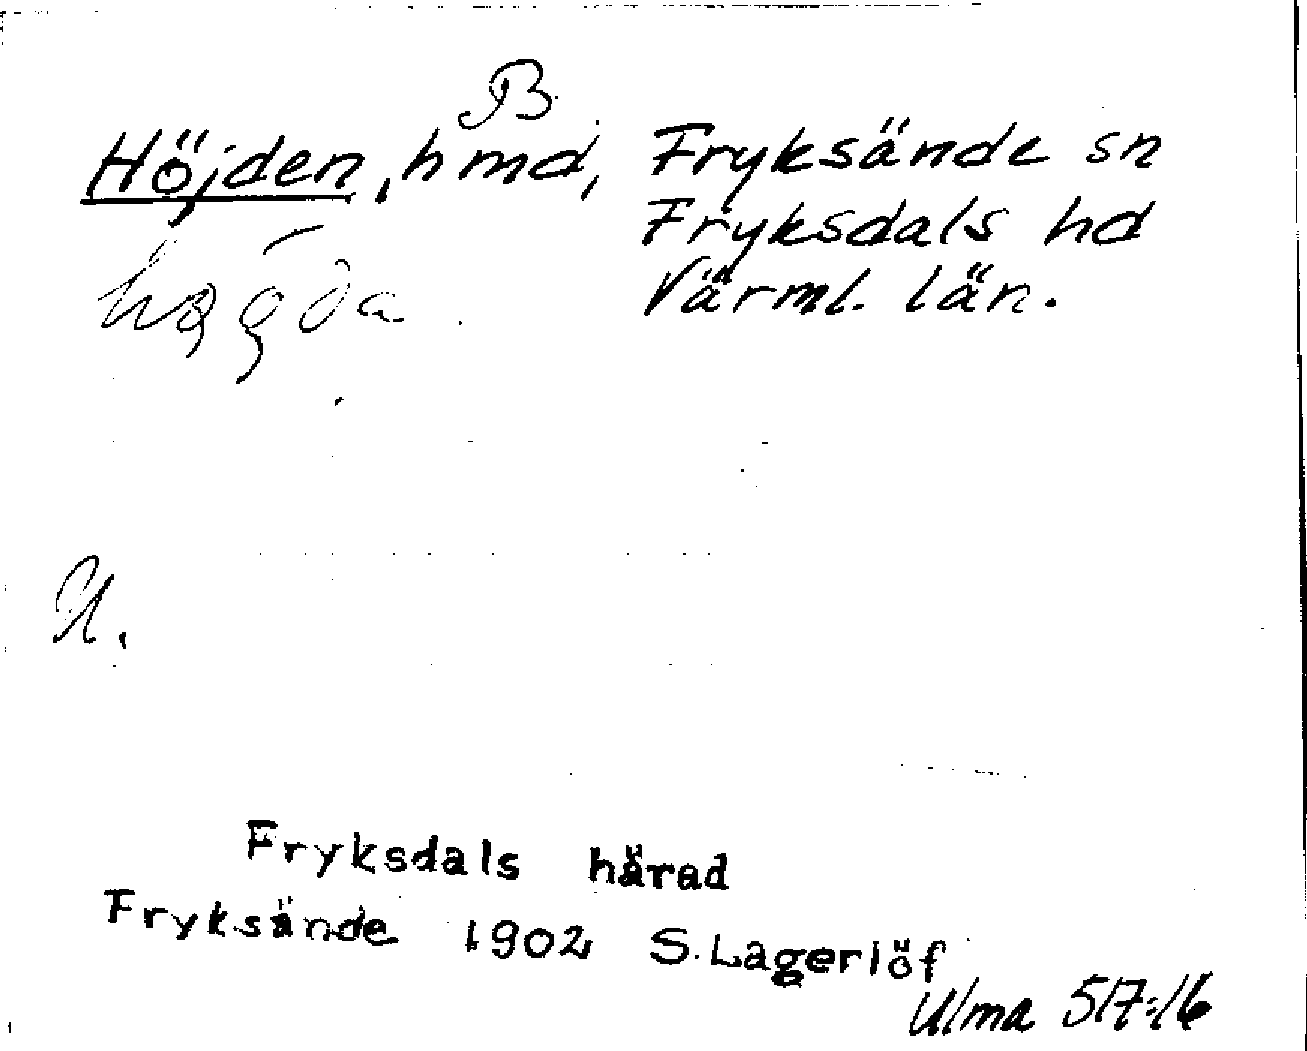 B
Höjden, hmd, Fryksände sn
Fryksdals hd
Värml. län.
U.
Fryksdals härad
Fryksände 1902 S. Lagerlöf
Ulma 517:16